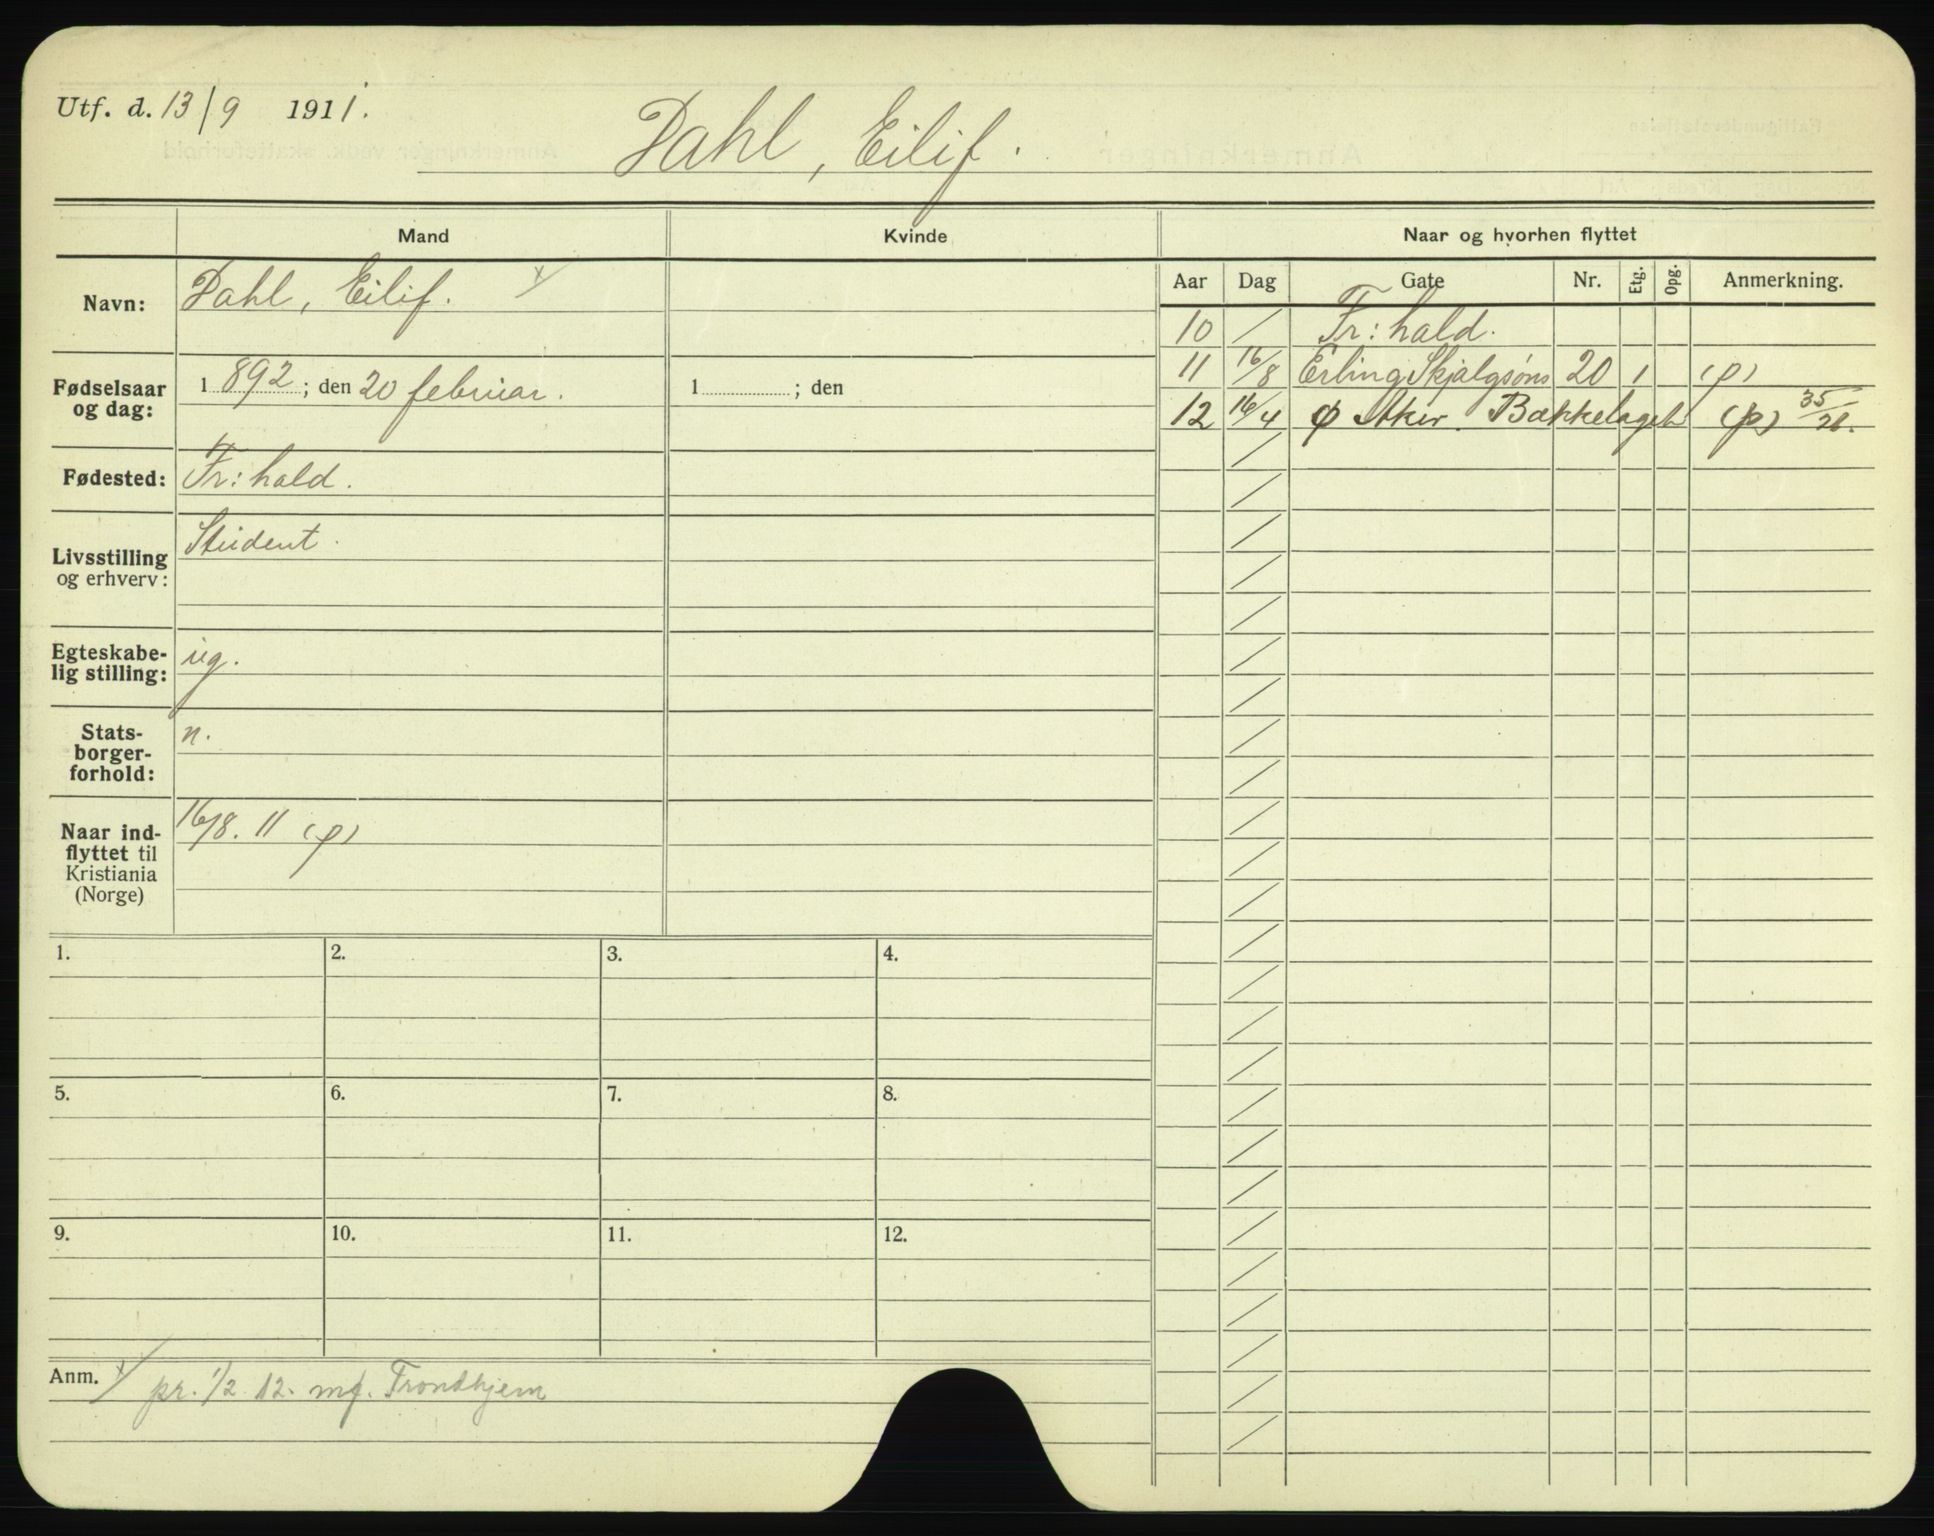 Utf. d. 13/9 1911.
Dahl, Eilif.
Mand
Kvinde
Naar og hvorhen flyttet
Navn: Dahl, Eilif. x/
Fødselsaar og dag: 1892; den 20 februar.
1 ; den
Fødested: Fr:hald.
Livsstilling og erhverv: Student.
Egteskabe-
lig stilling: ug.
Stats-
borger-
forhold: n.
Naar ind-
flyttet til
Kristiania
(Norge) 16/8. 11 (p)
Aar Dag Gate Nr. Etg. Opg. Anmerkning.
10 / Fr:hald.
11 16/8 Erling Skjalgsøns 20 1 (p)
12 16/4 φ Aker. Bækkelaget (p) 35/21.
1. 2. 3. 4.
5. 6. 7. 8.
9. 10. 11. 12.
Anm. x/ pr. 1/2 12. mf. Trondhjem